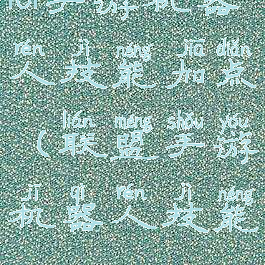 手游机器
rén jì néng jiā diǎn
人技能加点
lián méng shǒu yóu
(联盟手游
jī qì rén jì néng
机器人技能